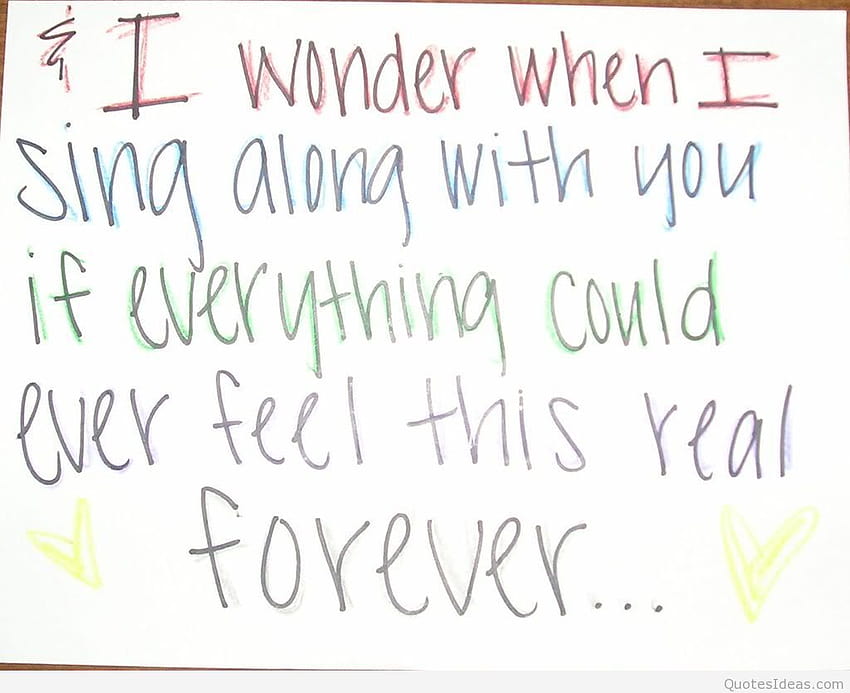 & I wonder when I
sing along with you
if everything could
ever feel this real
forever...
QuotesIdeas.com